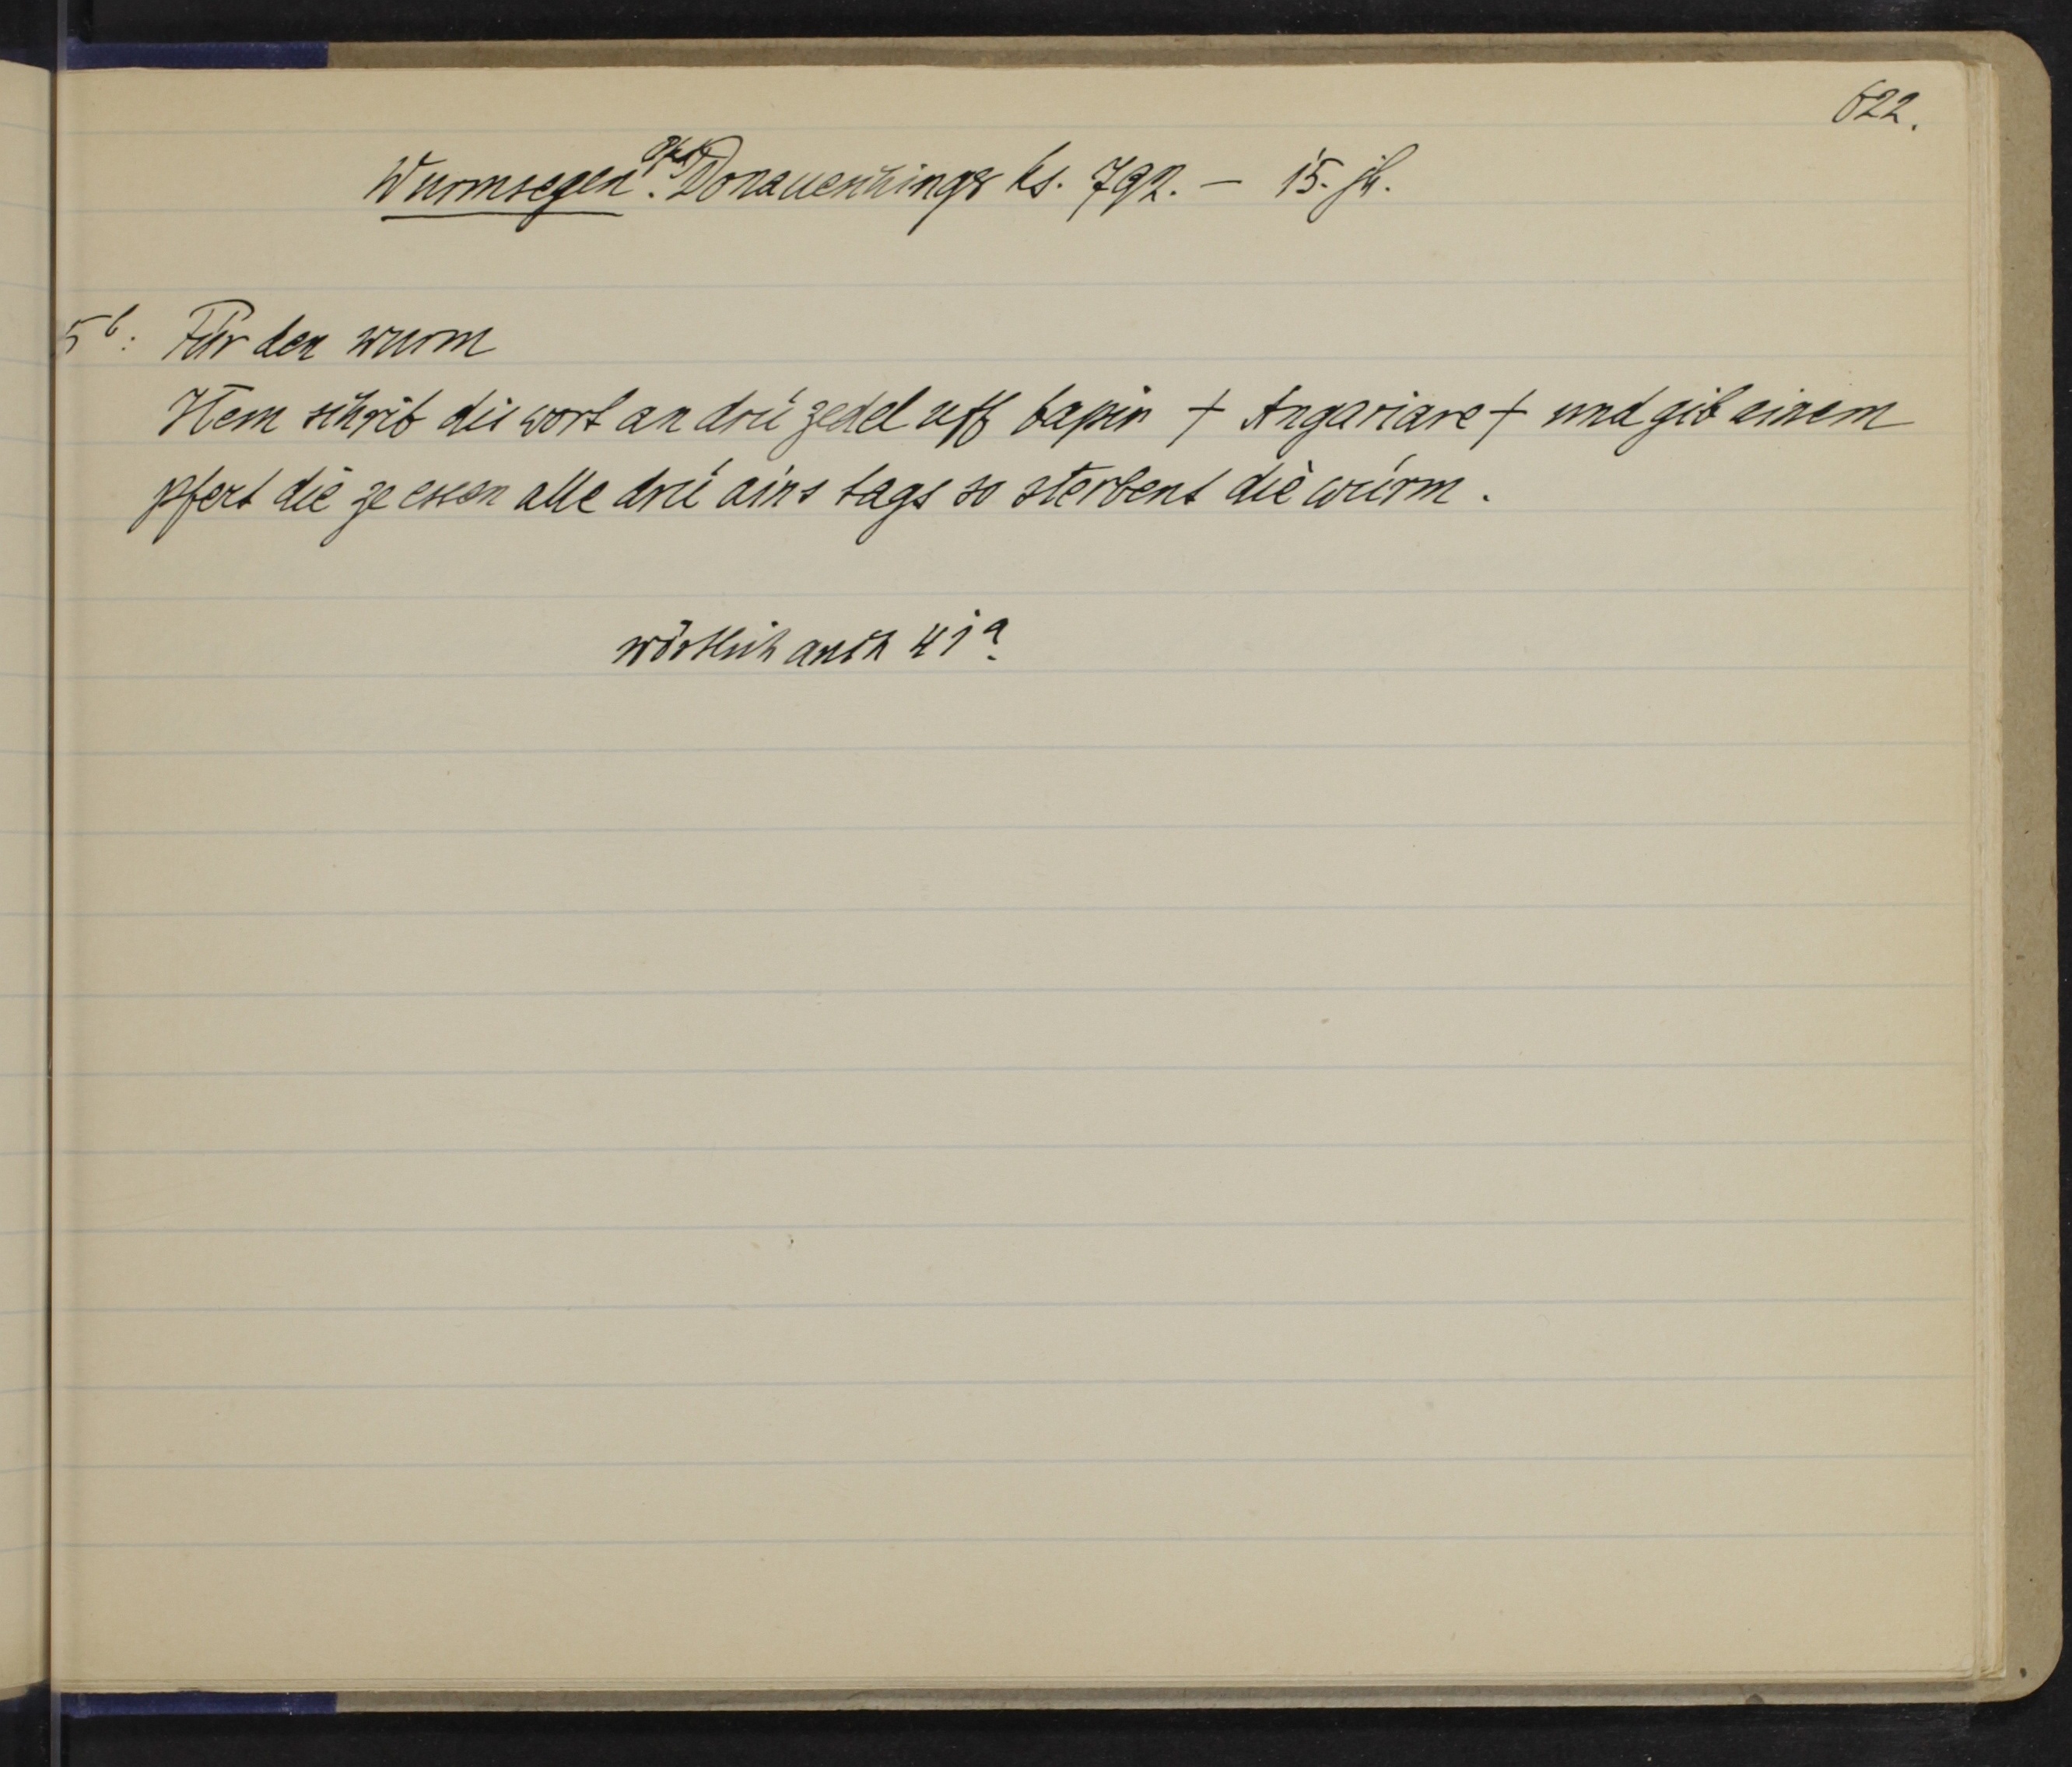 622.
Wurmsegen. Donaueschinger hs. 792. – 15. jh.
5b: Für den wurm
Item schrib die wort an drü zedel uff bapir + Angariare + und gib einem
pfert die ze essen alle drü ains tags so sterbent die würm.
wörtlich auch 41a.